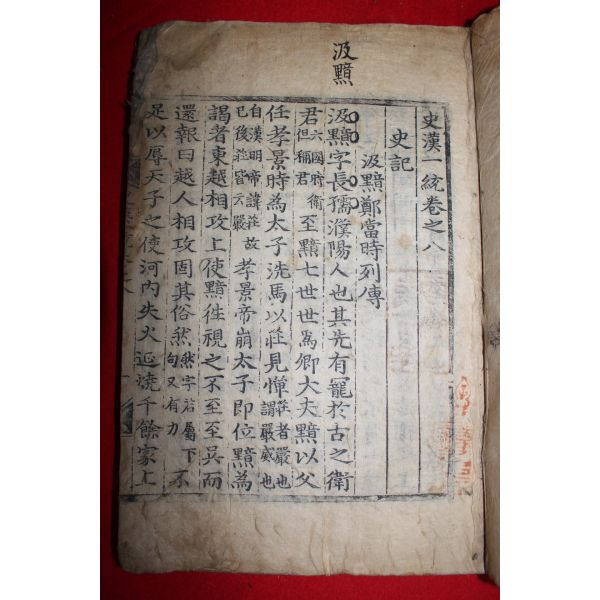 汲黯
史漢一統卷之八
史記
汲黯鄭當時列傳
汲黯字長孺濮陽人也其先有寵於古之衛
君六國時衛但稱君至黯七世世爲卿大夫黯以父
任孝景時為太子洗馬以莊見憚莊者嚴也謂嚴威也
自漢明帝諱莊故已後莊皆云嚴孝景帝崩太子即位黯為
謁者東越相攻上使黯往視之不至至吳而
還報曰越人相攻固其俗然然字若屬下句又有力不
足以辱天子之使河內失火延燒千餘家上